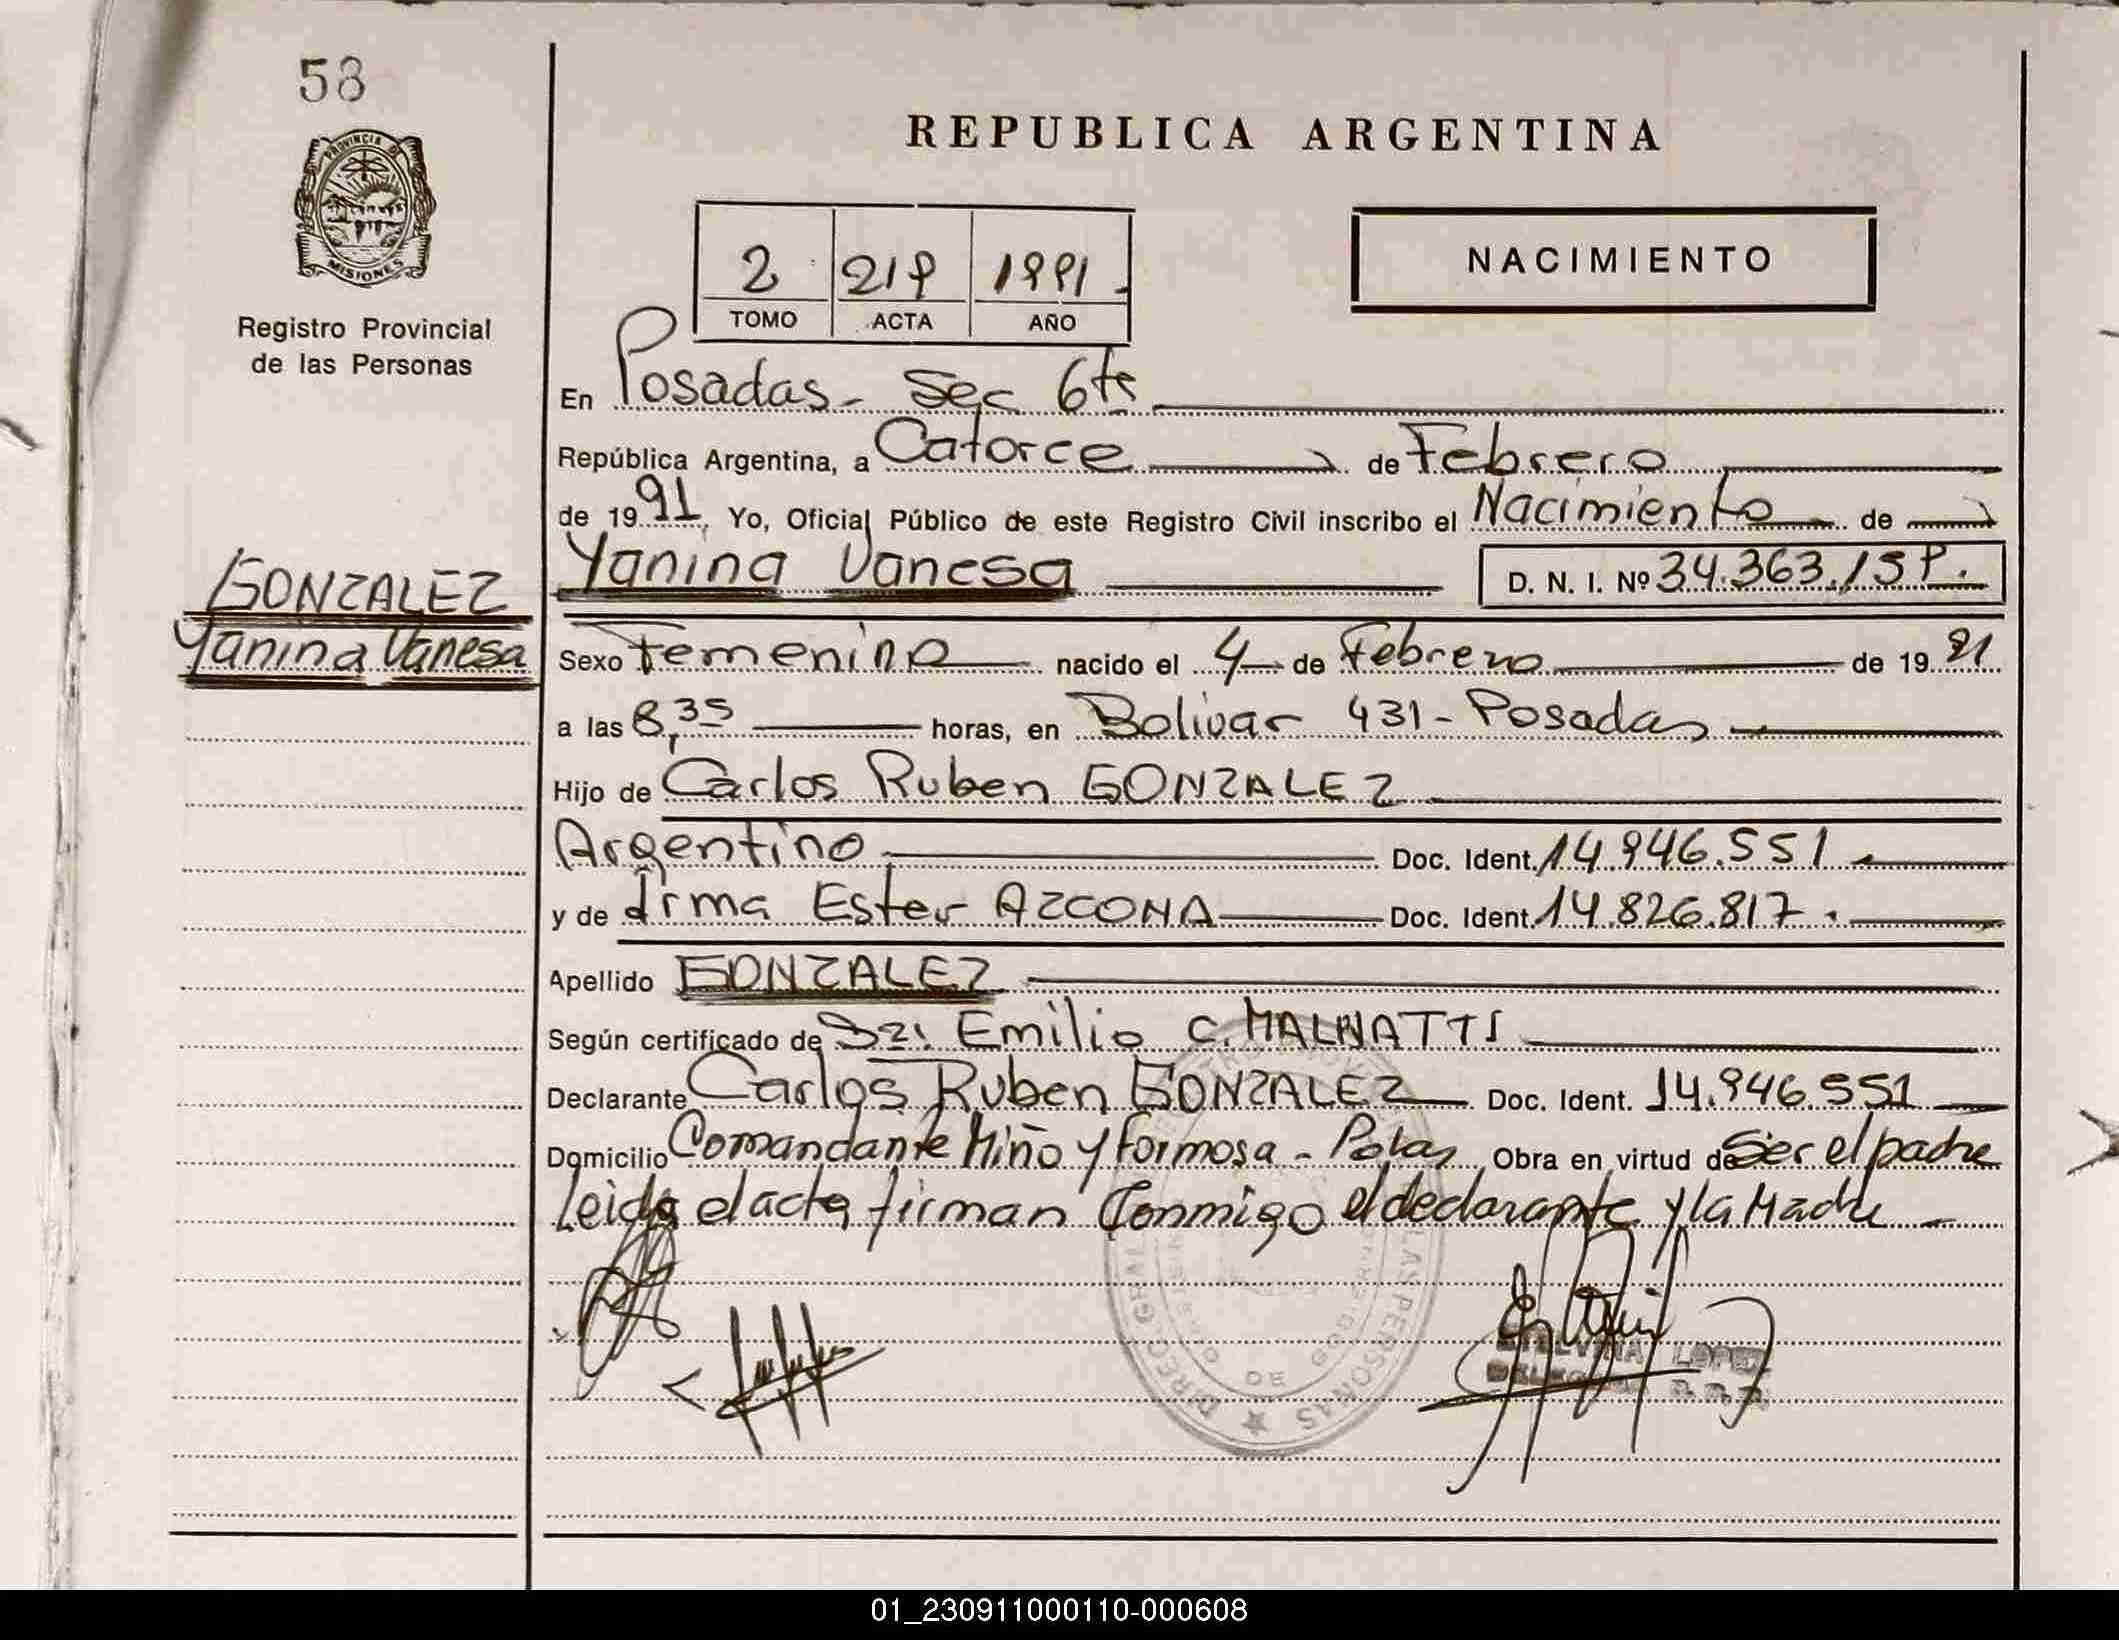 58
PROVINCIA DE
MISIONES
Registro Provincial
de las Personas
REPUBLICA ARGENTINA
2 219 1991
TOMO ACTA AÑO
NACIMIENTO
En Posadas - Sec 6ta
República Argentina, a Catorce de Febrero
de 1991, Yo, Oficial Público de este Registro Civil inscribo el Nacimiento de
Yanina Vanesa D. N. I. Nº 34.363.159.
GONZALEZ
Yanina Vanesa
Sexo Femenino nacido el 4 de Febrero de 1991
a las 8,35 horas, en Bolivar 431 - Posadas
Hijo de Carlos Ruben GONZALEZ
Argentino Doc. Ident. 14.946.551
y de Irma Ester AZCONA Doc. Ident. 14.826.817.
Apellido GONZALEZ
Según certificado de Dr. Emilio C. MALNATTI
Declarante Carlos Ruben GONZALEZ Doc. Ident. 14.946.551
Domicilio Comandante Miño y Formosa - Pdas Obra en virtud de Ser el padre
Leida el acta firman Conmigo el declarante y la Madre
DIREC. GRAL. DE LAS PERSONAS
LOPEZ
01_230911000110-000608